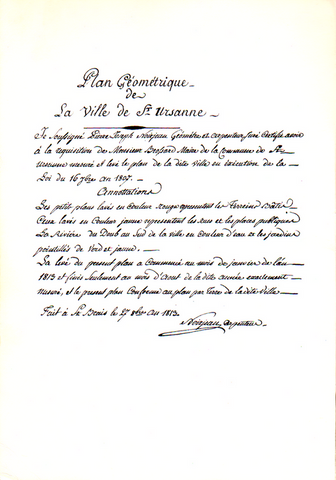 Plan Géométrique
de
La Ville de St Ursanne.
Je Soussigné Pierre Joseph Géomètre et arpenteur juré Certifie avoir
à la requisition de Monsieur Maire de la Commune de St
Ursanne mesuré et levé le plan de la dite ville en éxécution de la
Loi du 16 7bre an 1807.
Connotations
Des petit plans lavés en Couleur Rouge représentent les Terreins Bâtis
Ceux lavés en Couleur jaune representent les Rues et les places publiques
La Rivière du Doub au Sud de la ville en Couleur d'eau et les jardins
pointillés de Verd et jaune.
La levé du present plan a Commencé au mois de janvier de l'an
1813 et finis Seulement au mois d'Aout de la dite année exactement
mesuré, et le present plan Conforme au plan par Terre de la dite Ville
Fait à St Brais le 27 1813.
arpenteur